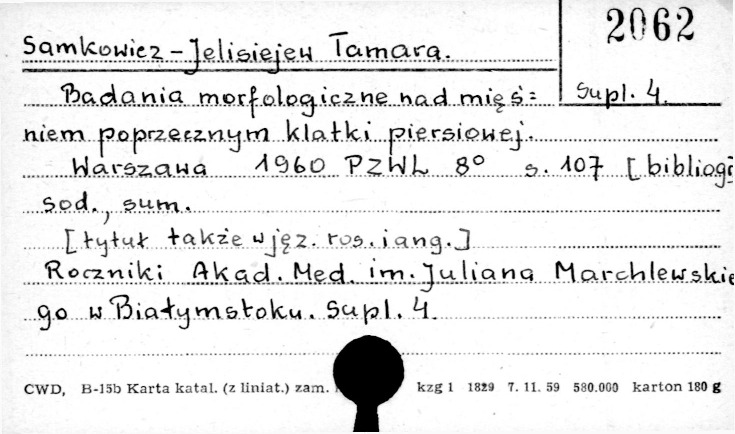 2062
Samkowicz-Jelisiejew Tamara.
Supl. 4.
Badania morfologiczne nad mięś=
niem poprzecznym klatki piersiowej.
Warszawa 1960 PZWL 8° s. 107 [bibliogr
sod., sum.
[tytuł także w jęz. ros. i ang.]
Roczniki Akad. Med. im. Juliana Marchlewskie
go w Białymstoku. Supl. 4.
CWD, B-15b Karta katal. (z liniat.) zam. kzg 1 1829 7. 11. 59 580.000 karton 180 g